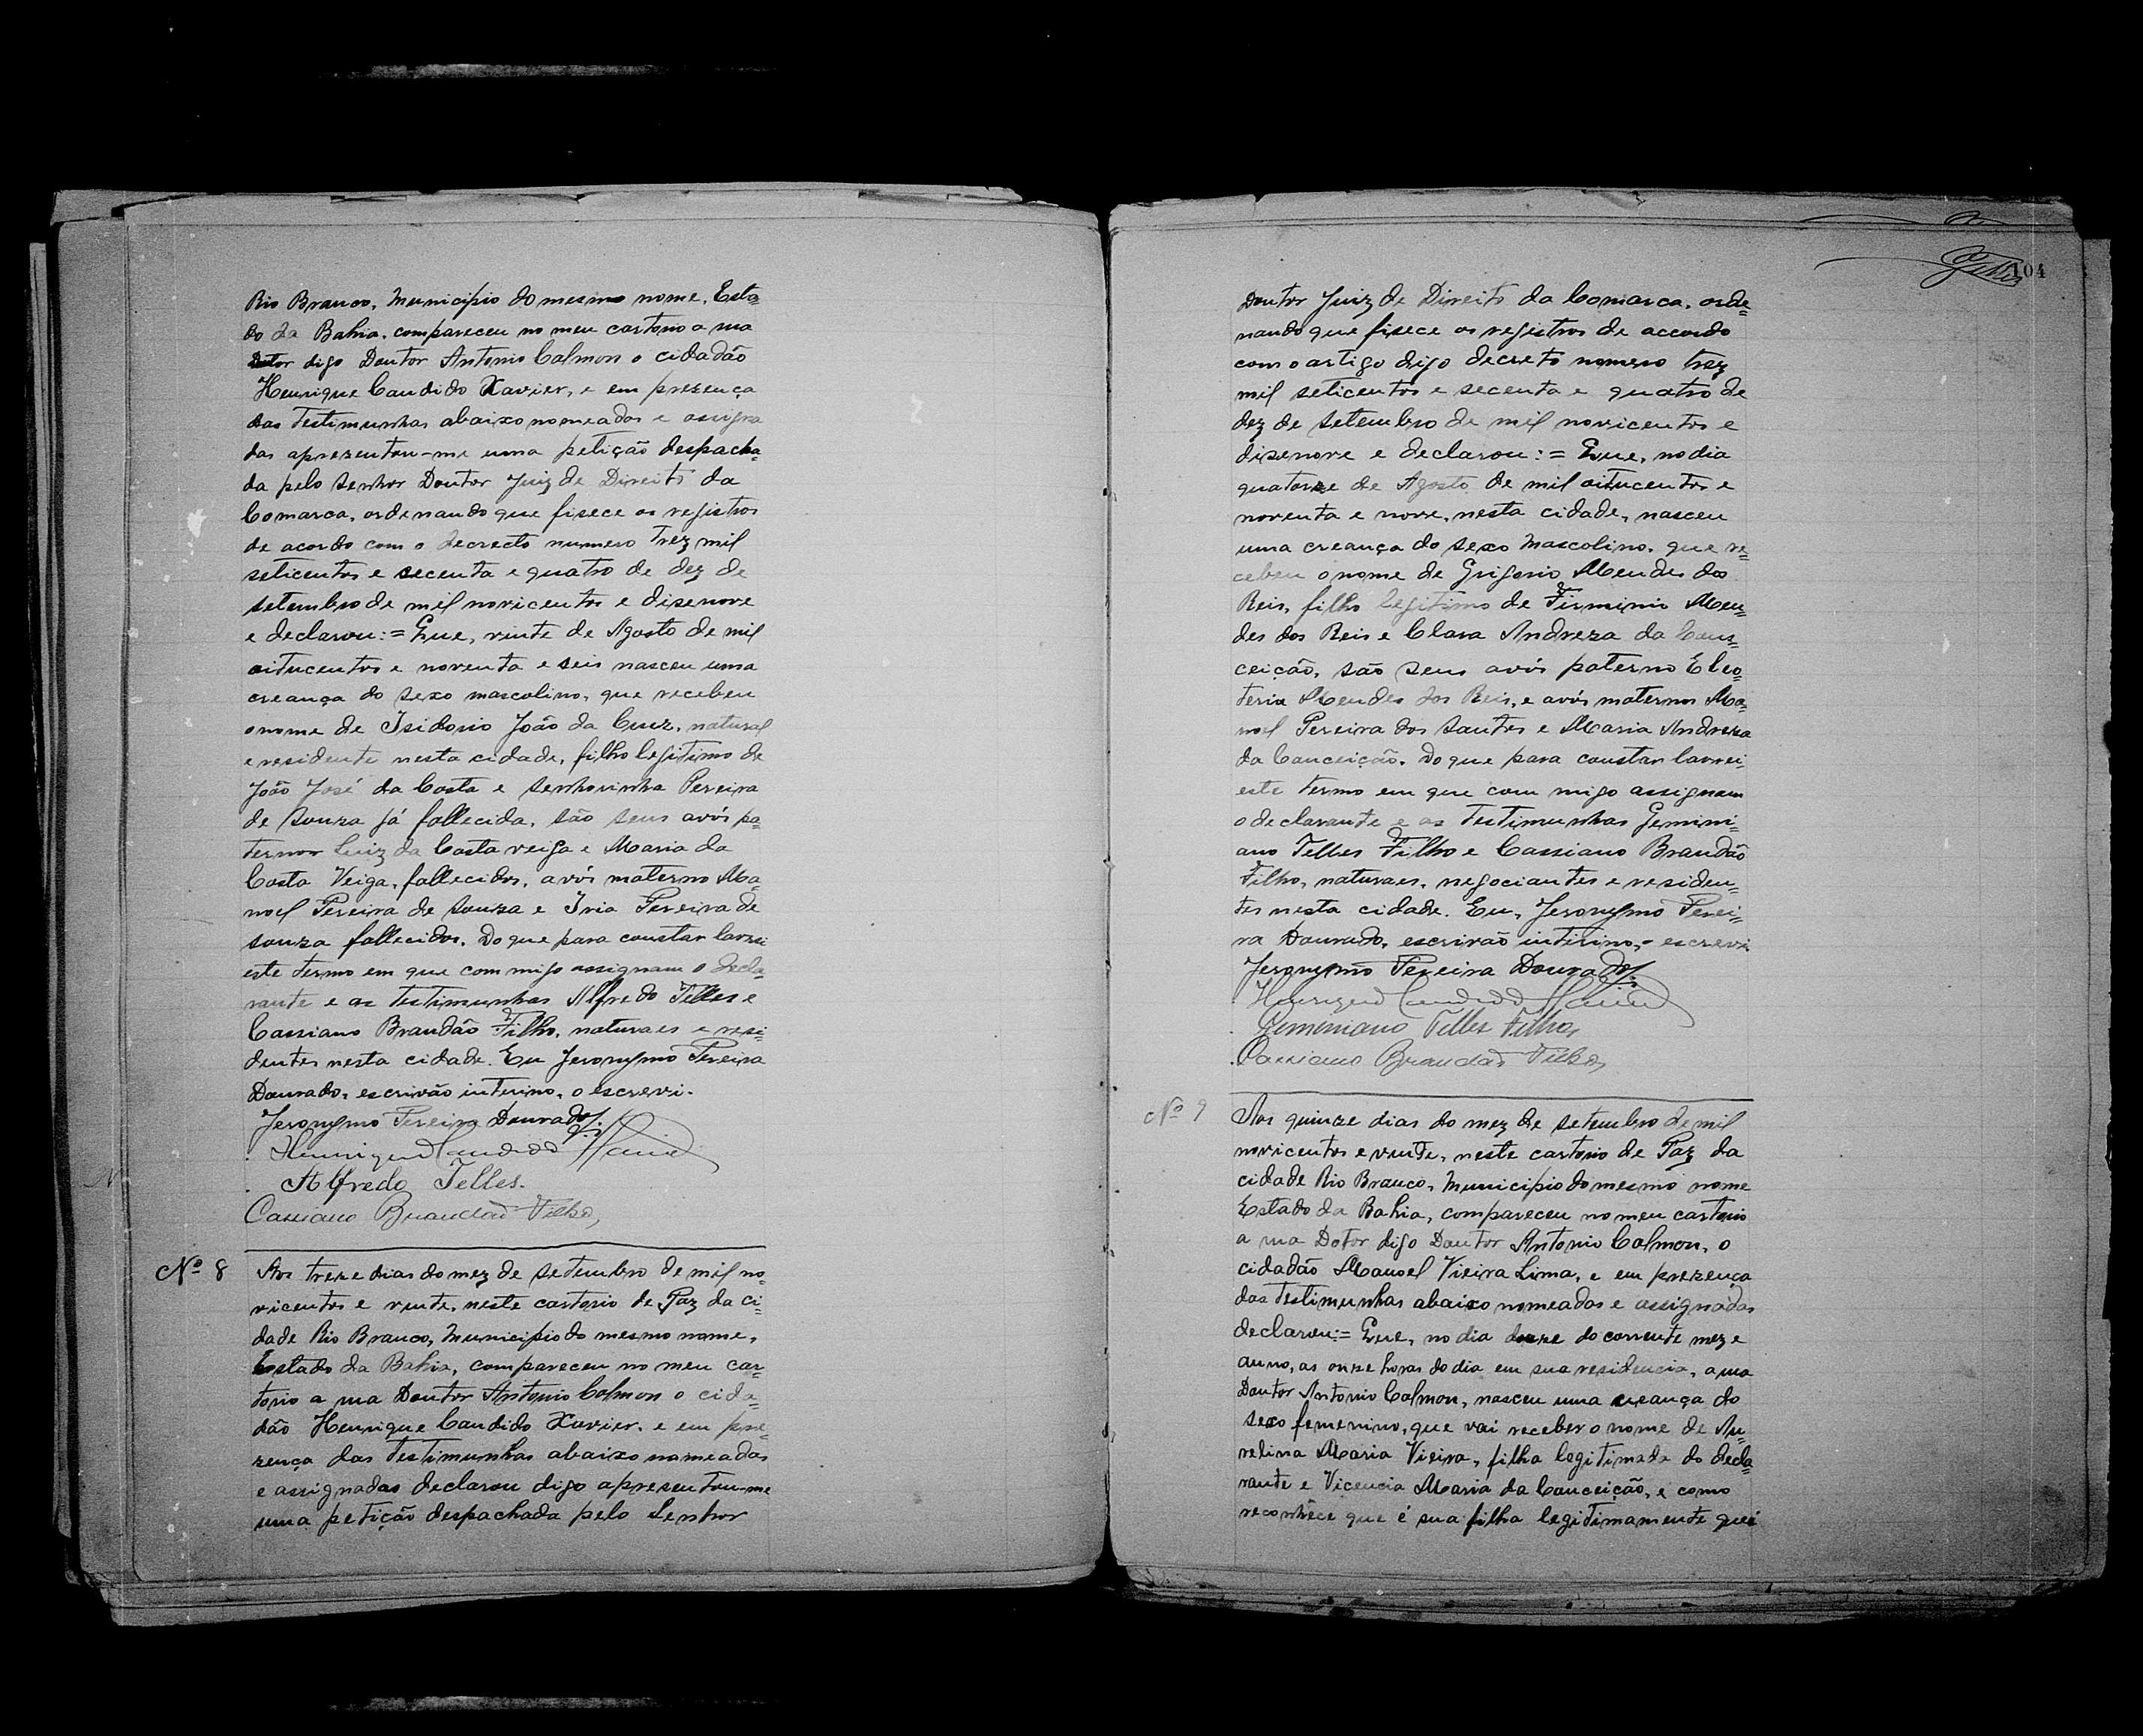 Rio Branco, Municipio do mesmo nome, Esta=
do da Bahia, compareceu no meu cartorio a rua
Dotor digo Doutor Antonio Calmon o cidadão
Henrique Candido Xavier, e em prezença
das testimunhas abaixo nomeadas e assigna
das aprezentou-me uma petição despacha=
da pelo Senhor Doutor Juiz de Direito da
Comarca, ordenando que fisece os registros
de acordo com o decrecto numero trez mil
seticentos e secenta e quatro de dez de
setembro de mil novicentos e disenove
e declarou:= Que, vinte de Agosto de mil
oitucentos e noventa e seis nasceu uma
creança do sexo mascolino, que recebeu
o nome de Isidorio João da Cruz, natural
e residente nesta cidade, filho legitimo de
João José da Costa e Senhorinha Pereira
de Souza já fallecida, são seus avós pa=
ternos Luiz da Costa veiga e Maria da
Costa Veiga, fallecidos, avós materno Ma=
noel Pereira de Souza e Iria Pereira de
souza fallecidos. Do que para constar lavrei
este termo em que commigo assignam o decla=
rante e as testimunhas Alfredo Telles e
Cassiano Brandão Filho, naturaes e resi=
dentes nesta cidade. Eu Jeronymo Pereira
Dourado, escrivão interino, o escrevi.
Jeronymo Pereira Dourado
Henrique Candido Xavier
Alfredo Telles.
Cassiano Brandão Filho,
Nº 8
Aos treze dias do mez de setembro de mil no=
vicentos e vente, neste cartorio de Paz da ci=
dade Rio Branco, Municipio do mesmo nome,
Estado da Bahia, compareceu no meu car=
torio a rua Doutor Antonio Calmon o cida=
dão Henrique Candido Xavier, e em pre=
zença das testimunhas abaixo nomeadas
e assignadas declarou digo apresentou-me
uma petição despachada pelo Senhor
104
Doutor Juiz de Direito da Comarca, orde=
nando que fisece os registros de accordo
com o artigo digo decreto nomero trez
mil seticentos e secenta e quatro de
dez de setembro de mil novicentos e
disenove e declarou:= Que, no dia
quatorze de Agosto de mil oitucentos e
noventa e nove, nesta cidade, nasceu
uma creança do sexo Mascolino, que re=
cebeu o nome de Grigorio Mendes dos
Reis, filho legitimo de Firminio Men=
des dos Reis e Clara Andreza da Con=
ceição, são seus avós paterno Eleo=
teria Mendes dos Reis, e avós maternos Ma=
noel Pereira dos Santos e Maria Andreza
da Conceição. Do que para constar lavrei
este termo em que com migo assignam
o declarante e as testimunhas Gemini=
ano Telles Filho e Cassiano Brandão
Filho, naturaes, negociantes e residen=
tes nesta cidade. Eu, Jeronymo Perei=
ra Dourado, escrivão intirino, escrevi
Jeronymo Pereira Dourado
Henrique Candido Xavier
Geminiano Telles Filho,
Cassiano Brandão Filho,
Nº 9
Aos quinze dias do mez de setembro de mil
novicentos e vinte, neste cartorio de Paz da
cidade Rio Branco, Municipio do mesmo nome
Estado da Bahia, compareceu no meu cartorio
a rua Dotor digo Doutor Antonio Calmon, o
cidadão Manoel Vieira Lima, e em prezença
das testimunhas abaixo nomeadas e assignadas
declarou:= Que, no dia doze do corrente mez e
anno, as onze horas do dia em sua residencia, a rua
Doutor Antonio Calmon, nasceu uma creança do
sexo femenino, que vai receber o nome de Au=
relina Maria Vieira, filha legitimada do decla=
rante e Vicencia Maria da Conceição, e como
reconhéce que é sua filha legitimamente quei